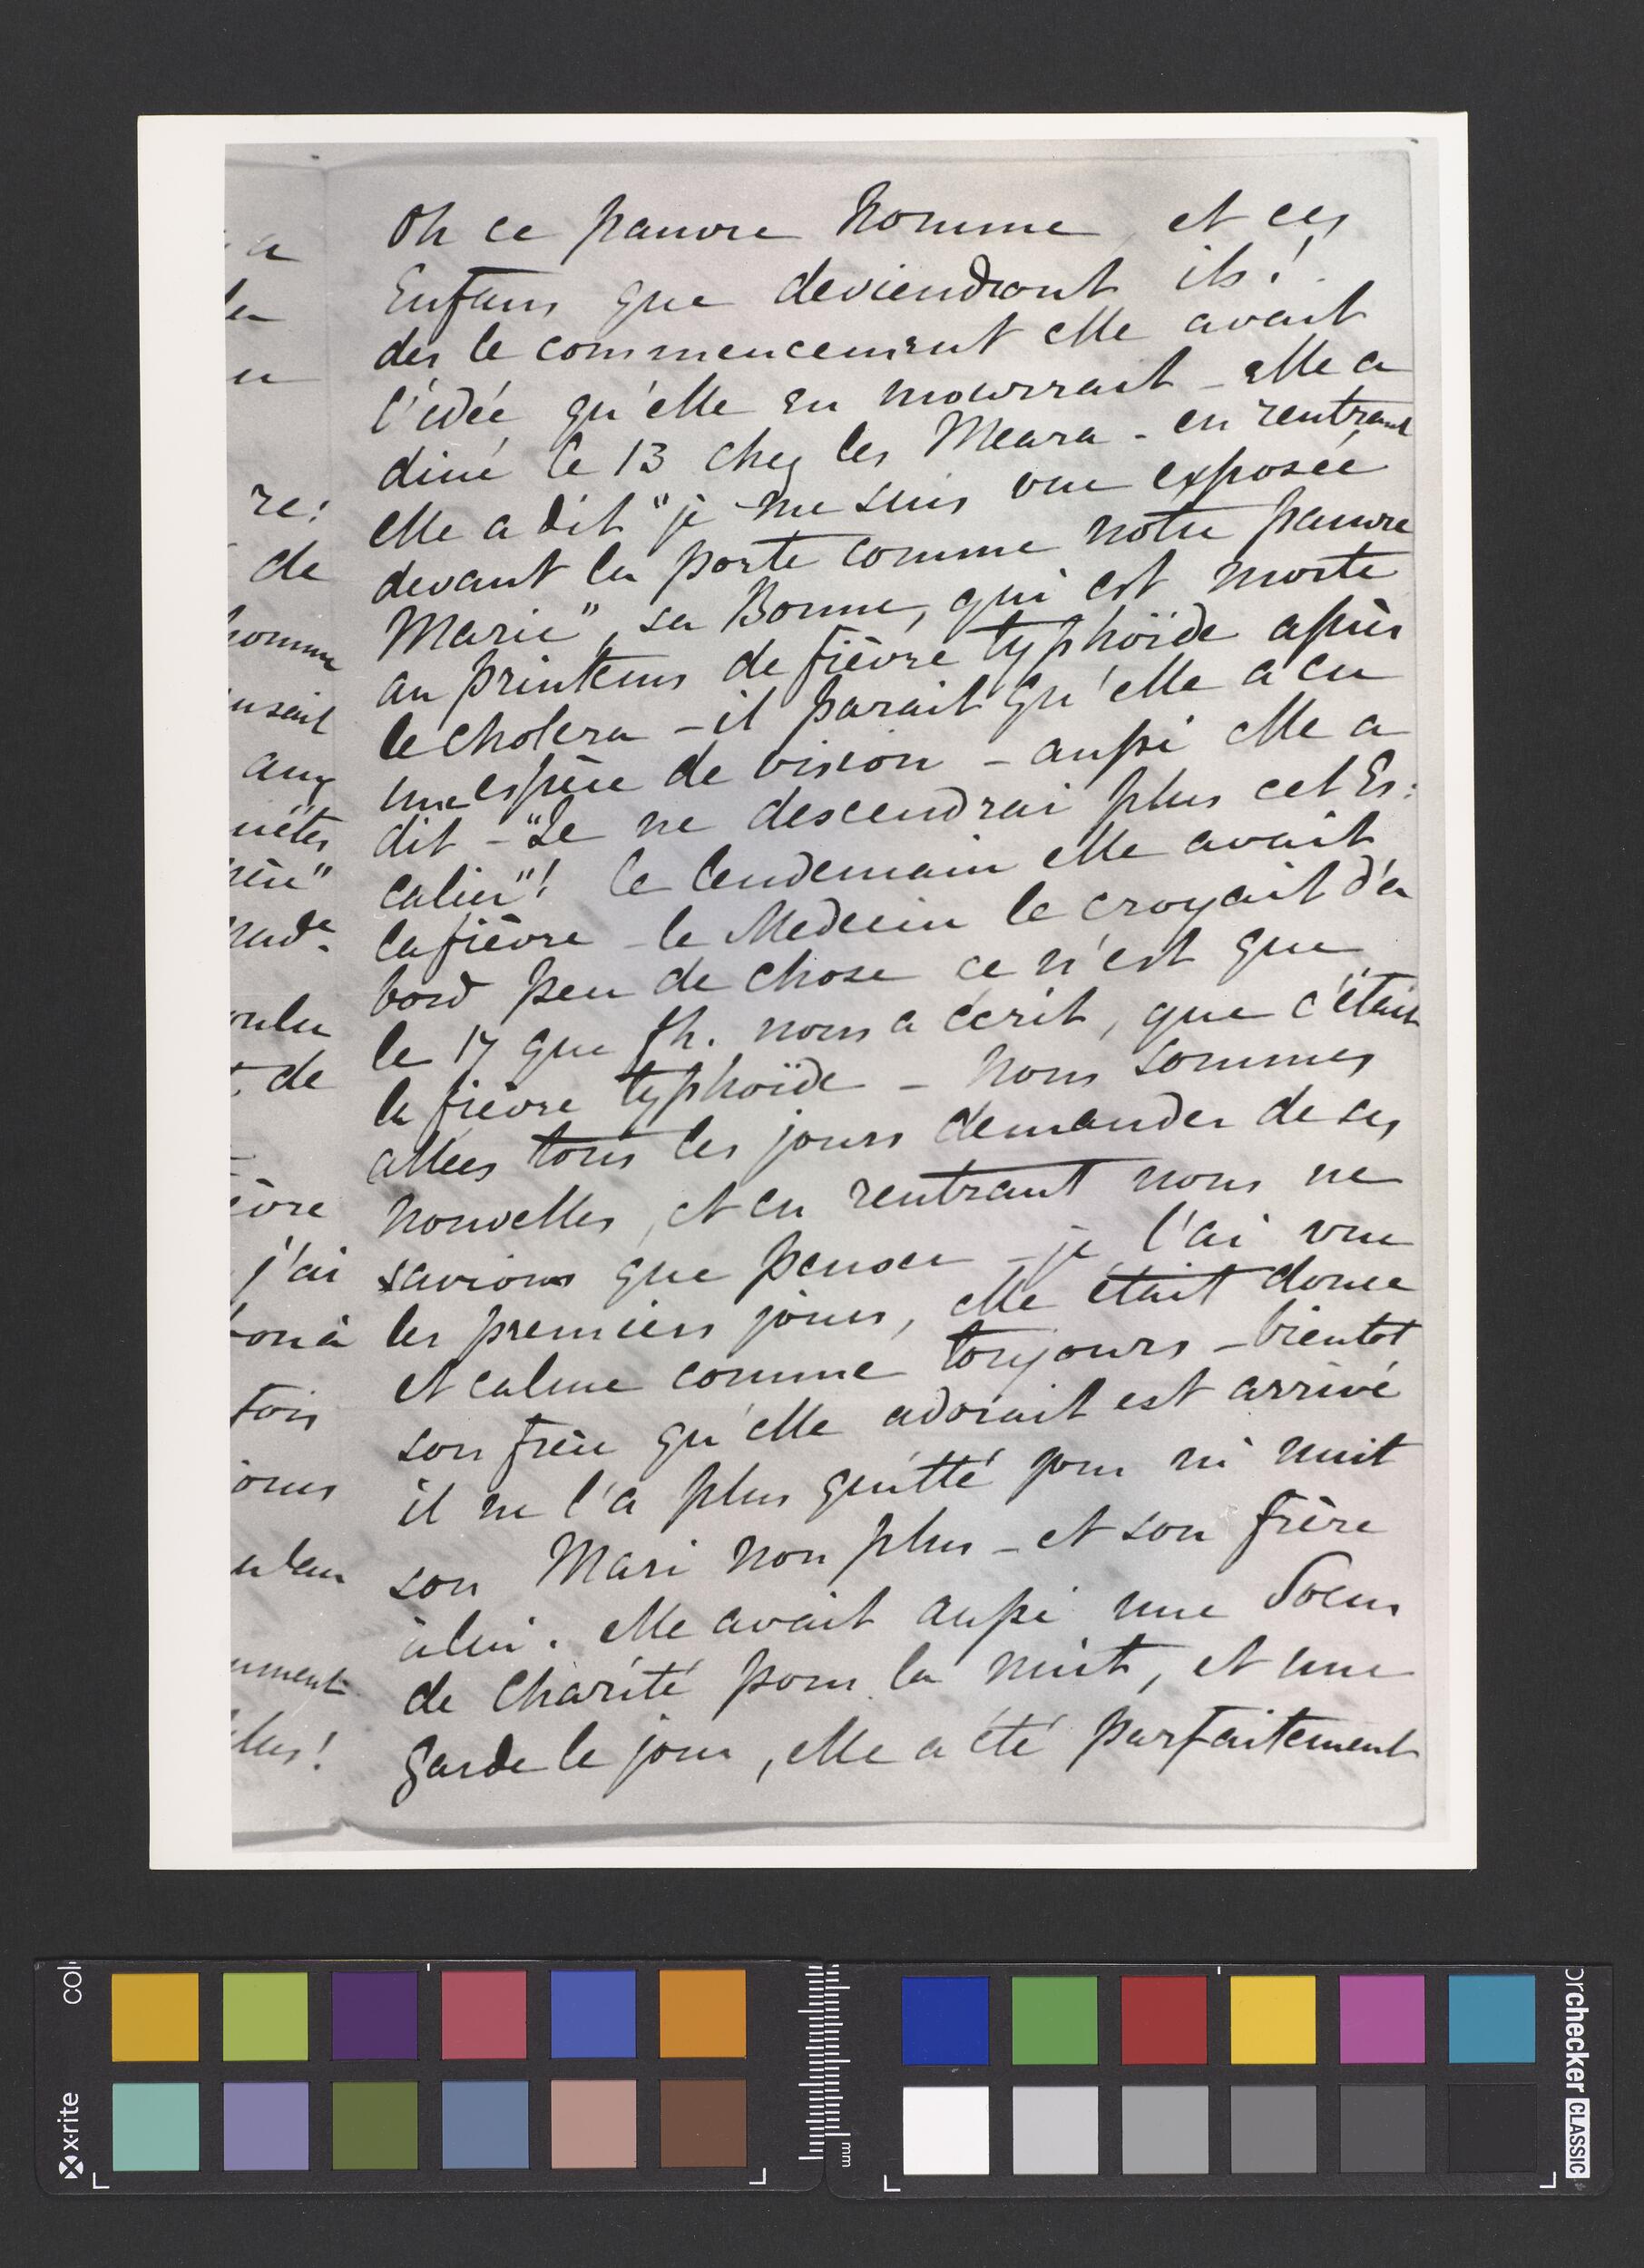 Oh ce pauvre homme, et ces
Enfans que deviendront ils!
des le commencement elle avait
l'idée qu'elle en mourrait _ elle a
diné le 13 chez les Meara - en rentrant
elle a dit "je me suis vue exposée
devant la porte comme notre pauvre
Marie", sa Bonne, qui est morte
au printems de fièvre typhoïde après
le cholera _ il parait qu'elle a eu
une espèce de vision _ aussi elle a
dit - "Je ne descendrai plus cet Es:
calier"! le lendemain elle avait
la fièvre _ le Medecin le croyait d'a
bord peu de chose ce n'est que
le 17 que Th. nous a écrit, que c'était
la fièvre typhoïde _ Nous sommes
allées tous les jours demander de ses
nouvelles, et en rentrant nous ne
savions que penser _ je l'ai vue
les premiers jours, elle était douce
et calme comme toujours _ bientot
son frère qu'elle adorait est arrivé
il ne l'a plus quitté jour ni nuit
son Mari non plus _ et son frère
à lui. elle avait aussi une Soeur
de Charité pour la nuit, et une
garde le jour, elle a été parfaitement
re:
de
aux
de
j'ai
x-rite
mm
checker CLASSIC